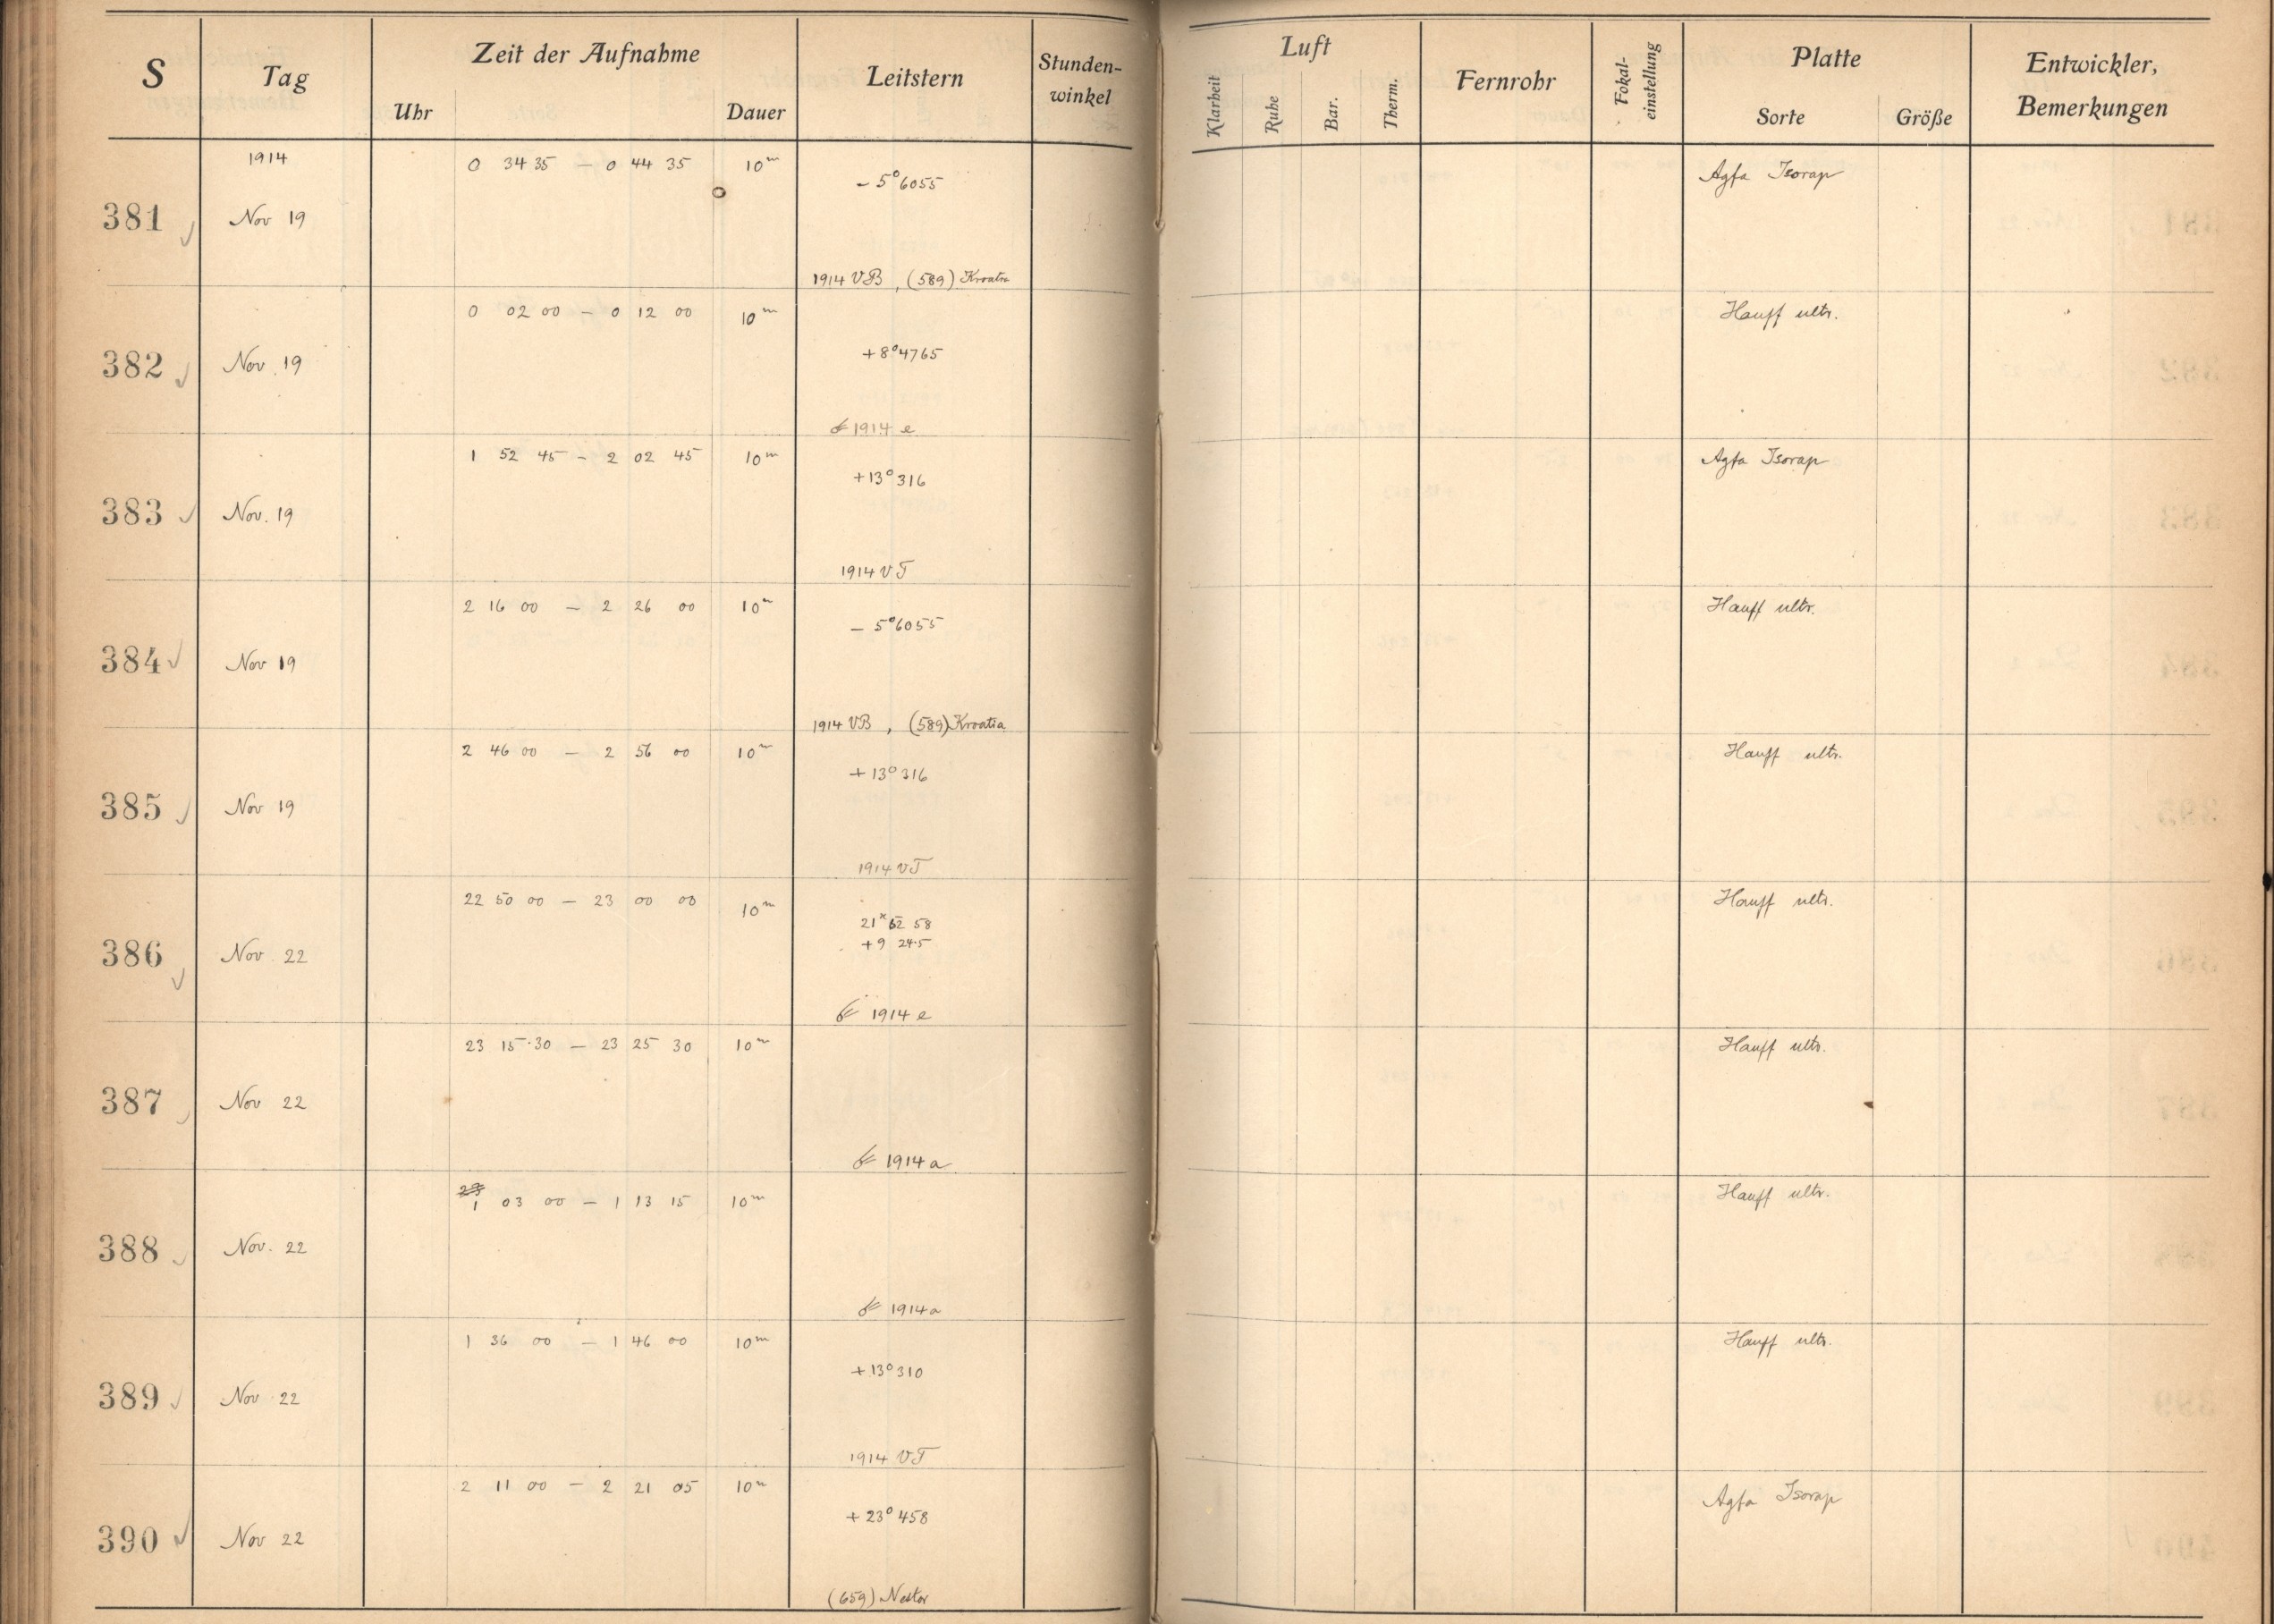 S Tag Zeit der Aufnahme Leitstern Stunden-winkel Luft Fernrohr Fokal-einstellung Platte Entwickler, Bemerkungen
Uhr Dauer Klarheit Ruhe Bar. Therm. Sorte Größe
1914 0 34 35 – 0 44 35 10m Agfa Isorap
– 5° 6055
381 Nov 19
1914 VB, (589) Kroatia
0 02 00 – 0 12 00 10m Hauff ultr.
+8° 4765
382 Nov. 19
☄ 1914 e
1 52 45 – 2 02 45 10m Agfa Isorap
+13° 316
383 Nov. 19
1914 VT
2 16 00 – 2 26 00 10m Hauff ultr.
– 5° 6055
384 Nov 19
1914 VB, (589) Kroatia
2 46 00 – 2 56 00 10m Hauff ultr.
+13° 316
385 Nov 19
1914 VT
22 50 00 – 23 00 00 10m Hauff ultr.
21 52 58
+9 245
386 Nov. 22
☄ 1914 e
23 15 30 – 23 25 30 10m Hauff ultr.
387 Nov 22
☄ 1914 a
1 03 00 – 1 13 15 10m Hauff ultr.
388 Nov. 22
☄ 1914 a
1 36 00 – 1 46 00 10m Hauff ultr.
+13° 310
389 Nov 22
1914 VT
2 11 00 – 2 21 05 10m Agfa Isorap
+23° 458
390 Nov 22
(659) Nestor